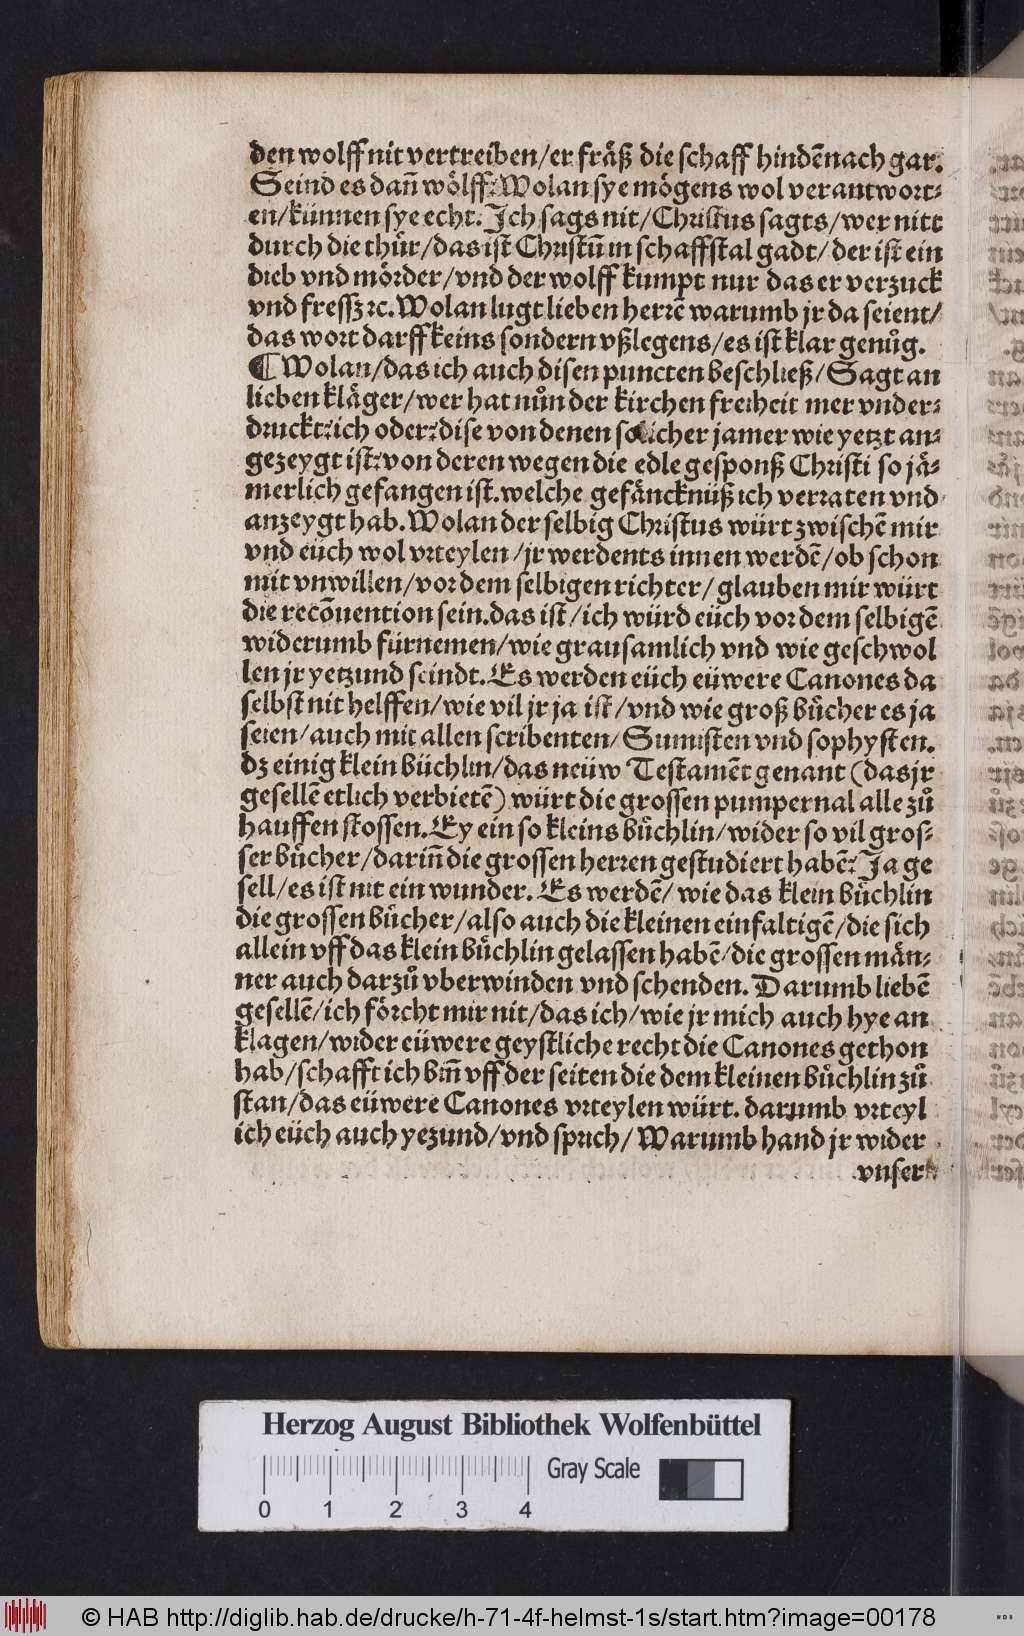 den wolff nit vertreiben/er fräß die schaff hindẽnach gar.
Seind es dañ wölff? Wolan sye mögens wol verantwort⸗
en/künnen sye echt. Ich sags nit/Christus sagts/wer nitt
durch die thür/das ist Christũ in schaffstal gadt/der ist ein
dieb vnd mörder/vnd der wolff kumpt nur das er verzuck
vnd fressz ꝛc. Wolan lugt lieben herrẽ warumb jr da seient/
das wort darff keins sondern vßlegens/es ist klar genůg.
¶ Wolan/das ich auch disen puncten beschließ/Sagt an
lieben kläger/wer hat nůn der kirchen freiheit mer vnder⸗
druckt? ich oder? dise von denen solicher jamer wie yetzt an⸗
gezeygt ist? von deren wegen die edle gesponß Christi so jä⸗
merlich gefangen ist. welche gefäncknüß ich verraten vnd
anzeygt hab. Wolan der selbig Christus würt zwischẽ mir
vnd eüch wol vrteylen/jr werdents innen werdẽ/ob schon
mit vnwillen/vor dem selbigen richter/glauben mir würt
die recõuention sein. das ist/ich würd eüch vor dem selbigẽ
widerumb fürnemen/wie grausamlich vnd wie geschwol
len jr yetzund seindt. Es werden eüch eüwere Canones da
selbst nit helffen/wie vil jr ja ist/vnd wie groß bücher es ja
seien/auch mit allen scribenten/Sumisten vnd sophysten.
dz einig klein büchlin/das neüw Testamẽt genant (das jr
gesellẽ etlich verbietẽ) würt die grossen pumpernal alle zů
hauffen stossen. Ey ein so kleins büchlin/wider so vil gros⸗
ser bücher/dariñ die grossen herren gestudiert habẽ? Ja ge
sell/es ist nit ein wunder. Es werdẽ/wie das klein büchlin
die grossen bücher/also auch die kleinen einfaltigẽ/die sich
allein vff das klein büchlin gelassen habẽ/die grossen män⸗
ner auch darzů vberwinden vnd schenden. Darumb liebẽ
gesellẽ/ich förcht mir nit/das ich/wie jr mich auch hye an
klagen/wider eüwere geystliche recht die Canones gethon
hab/schafft ich biñ vff der seiten die dem kleinen büchlin zů
stan/das eüwere Canones vrteylen würt. darumb vrteyl
ich eüch auch yezund/vnd sprich/Warumb hand jr wider
vnser
Herzog August Bibliothek Wolfenbüttel
Gray Scale
0 1 2 3 4
© HAB http://diglib.hab.de/drucke/h-71-4f-helmst-1s/start.htm?image=00178